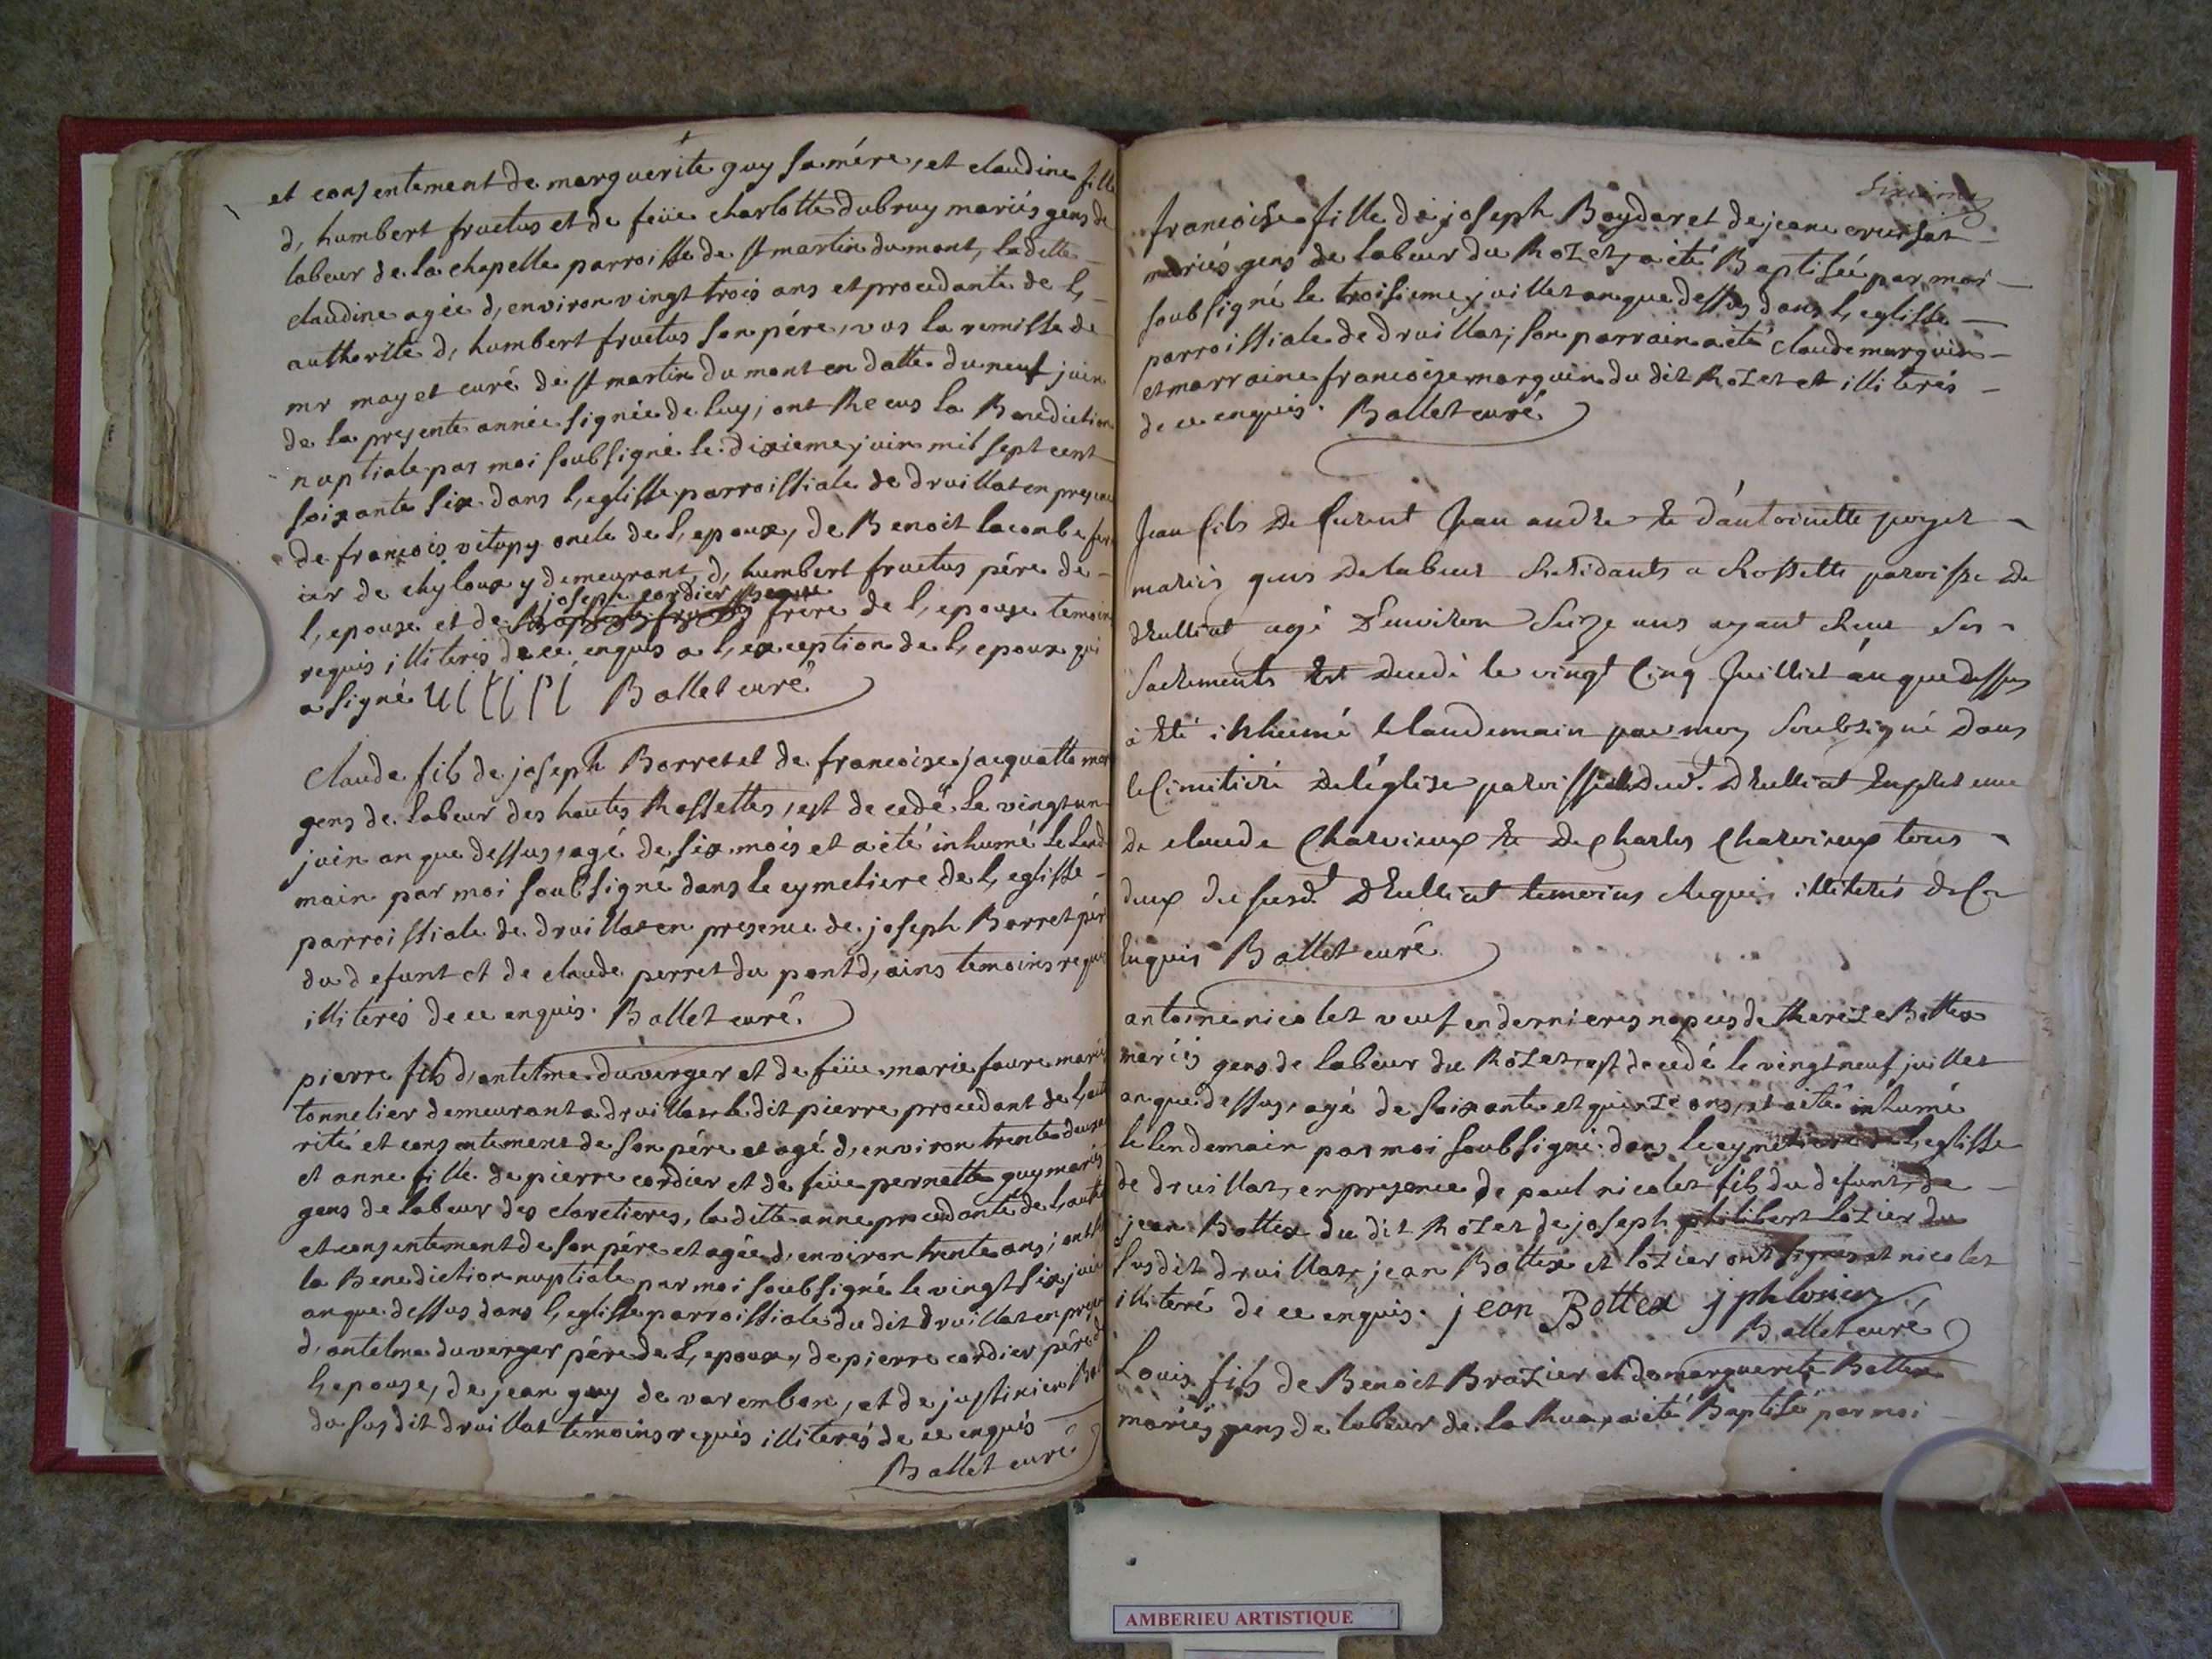 et consentement de marguerite guy sa mére, et claudine fille
d, humbert fructus et de feüe charlotte dubruy mariés gens de
labeur de la chapelle parroisse de st martin du mont, la ditte
claudine agée d, environ vingt trois ans et procedante de l,
authorité d, humbert fructus son pére, vus la remisse de
mr moyet curé de st martin du mont en datte du neuf juin
de la presente année signée de luy; ont Recus la Benediction
nuptiale par moi soubsigné le dixieme juin mil sept cent
soixante six dans l, eglisse parroissiale de druillat en presence
de francois vitupy oncle de l, epoux, de Benoit lacombe
de chyloux y demeurant, d, humbert fructus pére de
joseph cordier
l, epouse et de frère de l, epouse temoins
requis illiterés de ce enquis a l, exception de l, epoux qui
a signé Ballet curé
Claude fils de joseph Borret et de francoise jacquatte
gens de labeur des hautes Rossettes, est decedé le vingt un
juin an que dessus, agé de six mois et a été inhumé le lend
main par moi soubsigné dans le cymetiere de l, eglisse
parroissiale de druillat en presence de joseph Borret pére
du defunt et de claude perret du pont d, ains temoins requis
illiterés de ce enquis. Ballet curé.
pierre fils d, antelme duverger et de feüe marie faure mariés
tonnelier demeurant a druillat le dit pierre procedant de l, auto
rité et consentement de son pére et agé d, environ trente deux
et anne fille de pierre cordier et de feüe pernette guy mariés
gens de labeur des claretieres, la ditte anne procedante de l, auto
et consentement de son pére et agée d, environ trente ans; ont
la Benediction nuptiale par moi soubsigné le vingt six juin
an que dessus dans l, eglisse parroissiale du dit druillat en
d, antelme duverger pére de l, epoux, de pierre cordier pére de
l, epouse, de jean guy de varembon, et de justinien
du susdit druillat temoins requis illiterés de ce enquis
Ballet curé
Sixieme
francoise fille de joseph Boydar et de jeane
mariés gens de labeur du Rozet, a été Baptisée par moi
soubsigné le troisieme juillet an que dessus dans l, eglisse
parroissiale de druillat; son parrain a été claude marguin
et marraine francoise marguin du dit Rozet et illiterés
de ce enquis. Ballet curé
Jean fils de Jean andre et d'antoinette poyet
mariés gens de labeur Residants a Rossette paroisse de
druillat agé d'environ seize ans ayant Reçu ses
sacrements est decedé le vingt cinq Juillet an que dessus
a été inhumé le landemain par moy soubsigné dans
le Cimitiere de léglise paroissiale dud.t druillat en presence
de claude Charvieux et de Charles Charvieux tous
deux du susd.t druillat temoins requis illiterés de Ce
enquis Ballet curé
antoine nicolet veuf en dernieres nopces de therese Bottex
mariés gens de labeur du Rozet, est decedé le vingt neuf juillet
an que dessus, agé de soixante et quinze ans, et a été inhumé
le lendemain par moi soubsigné dans le cymetiere de l, eglisse
de druillat, en presence de paul nicolet fils du defunt, de
jean Bottex du dit Rozet de joseph philibert lozier du
susdit druillat, jean Bottex et lozier ont signés et nicolet
illiteré de ce enquis. jean Bottex jph losier
Ballet curé
Louis fils de Benoit Brazier et de marguerite Bottex
mariés gens de labeur de la Rua, a été Baptisé par moi
AMBERIEU ARTISTIQUE